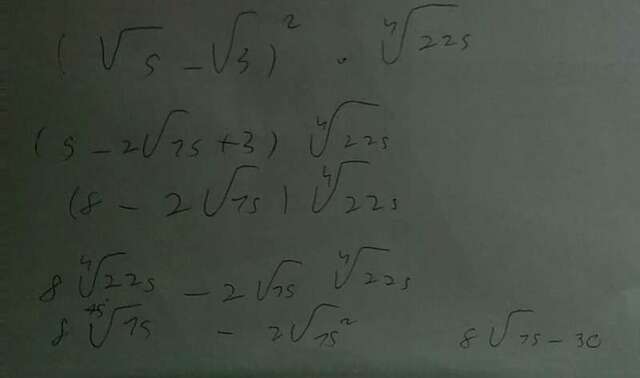 (√5 - √3)² · ⁴√225
(5 - 2√15 + 3) ⁴√225
(8 - 2√15) ⁴√225
8 ⁴√225 - 2√15 ⁴√225
8 √15 - 2√15² 8√15 - 30